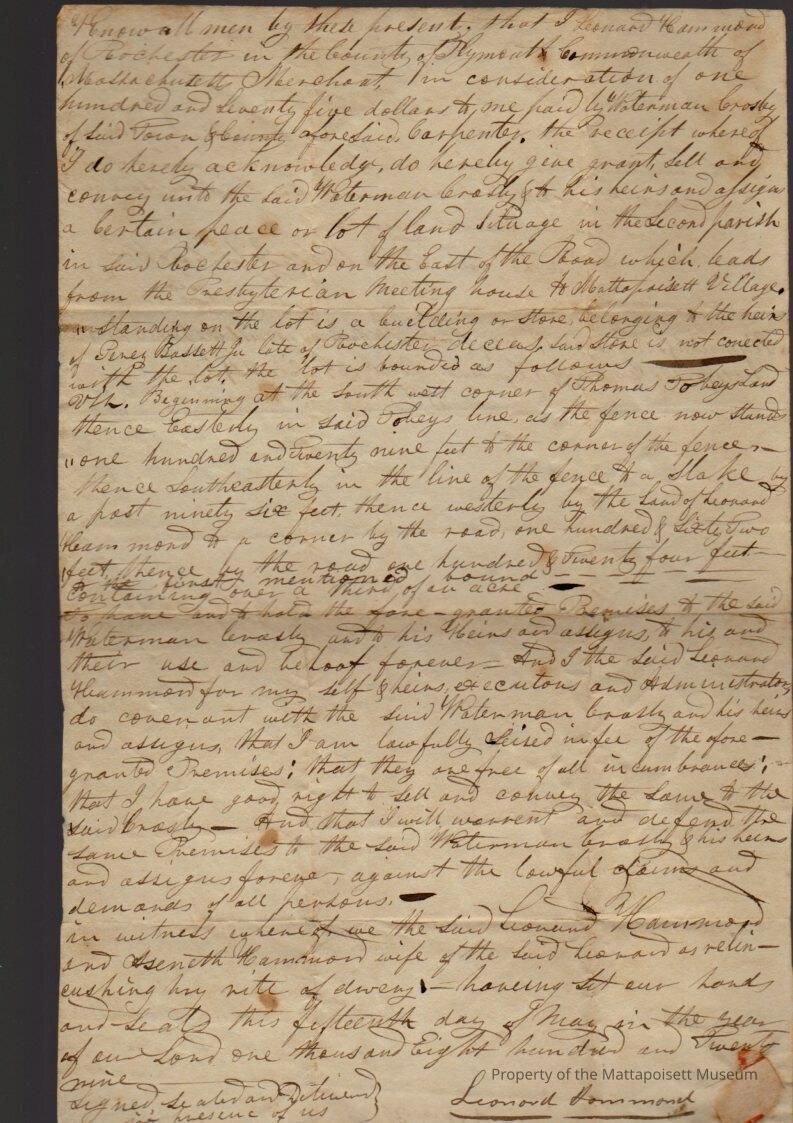 Know all men by these present, that I Leonard Hammond
of Rochester in the County of Plymouth & Commonwealth of
Massachusetts Merchant, in consideration of one
hundred and seventy five dollars to me paid by Waterman Crosby
of said Town & County aforesaid, Carpenter, the receipt whereof
I do hereby acknowledge, do hereby give grant, sell and
convey unto the said Waterman Crosby & to his heirs and assigns
a Certain peace or lot of land situage in the Second parish
in said Rochester and on the East of the Road which leads
from the Presbyterian Meeting house to Mattapoisett Village.
standing on the lot is a building or store, belonging to the heirs
of Perez Bassett Jr late of Rochester deceas, said store is not conected
with the lot, the lot is bounded as follows
Viz. Beginning at the South west corner of Thomas Tobeys Land
thence Easterly in said Tobeys line, as the fence now stands
one hundred and Twenty nine feet to the corner of the fence
thence southeasterly in the line of the fence to a stake by
a post ninety six feet, thence westerly by the land of Leonard
Hammond to a corner by the road, one hundred & Sixty Two
feet, thence by the road one hundred & Twenty four feet
the first mentioned bound
Containing over a third of an acre
To have and to hold the fore-granted Premises to the said
Waterman Crosby and to his Heirs and assigns, to his and
their use and behoof forever = And I the said Leonard
Hammond for my self & heirs, executons and Administrators
do covenant with the said Waterman Crosby and his heirs
and assigns, that I am lawfully Seized in fee of the afore-
granted Premises; that they are free of all incumbrances;
that I have good right to sell and convey the same to the
said Crosby - And that I will warrent and defend the
same Premises to the said Waterman Crosby & his heirs
and assigns forever, against the lawful claims and
demands of all persons.
in witness whereof we the said Leonard Hammond
and Aseneth Hammond wife of the said Leonard as relin-
cushing hry rite of dwery - haveing set our hands
and seals this fifteenth day of May in the year
of our Lord one thousand Eight hundred and Twenty
nine
Signed sealed and Delivered
presence of us
Leonard Hammond
Property of the Mattapoisett Museum